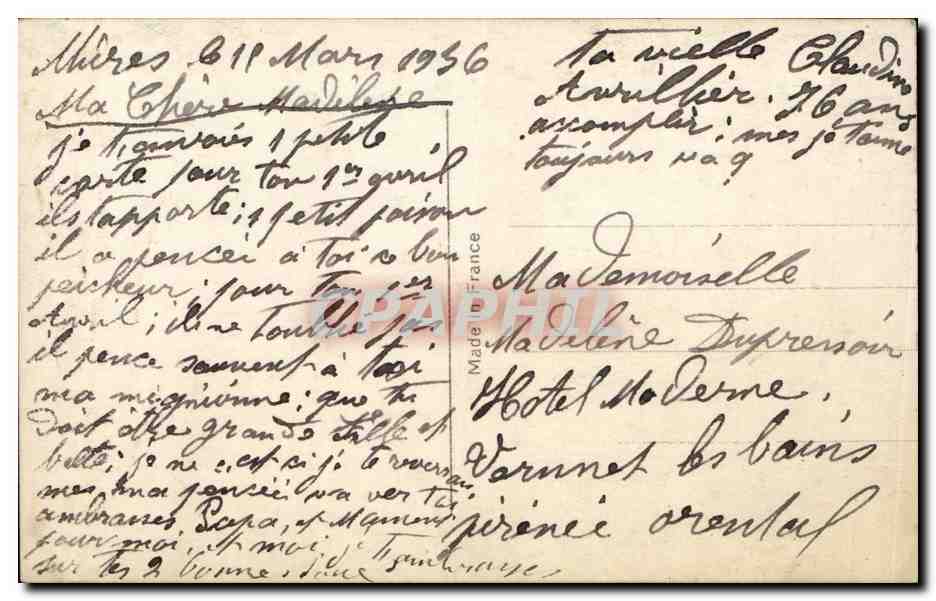 Mûres le 18 Mars 1936
Ma Chère Madeleine
je t'anvoies 1 petite
carte pour ton 1er avril
ils tapporte ; 1 petit poison
il a pencée à toi ce bon
peicheur ; pour ton 1er
Avril ; il ne toublie pas
il pence souvent à toi
ma mignionne ; que tu
doit être grande fille et
belle ; je ne c'est si je te reverrai
mes ma pencée va ver toi
ambrasses Papa, et Maman
pour moi, et moi je t'embrasse
sur tes 2 bonne
ta vielle Claudine
Avrillier. 76 ans
accomplir ; mes je taime
toujours
Made in France
CPAPHIL
Mademoiselle
Madeleine Dupressoir
Hotel Moderne,
Vernnet les bains
pirénée orental